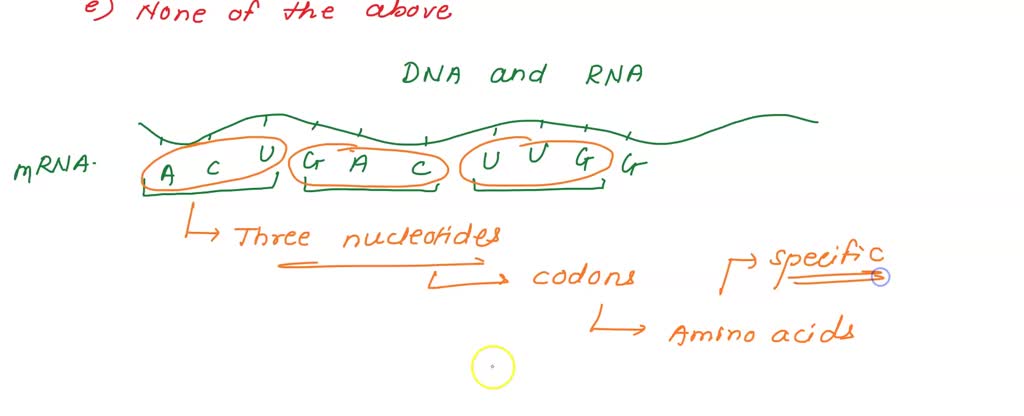 e) None of the above
DNA and RNA
mRNA.
A C U G A C U U G G
Three nucleotides
codons
specific
Amino acids